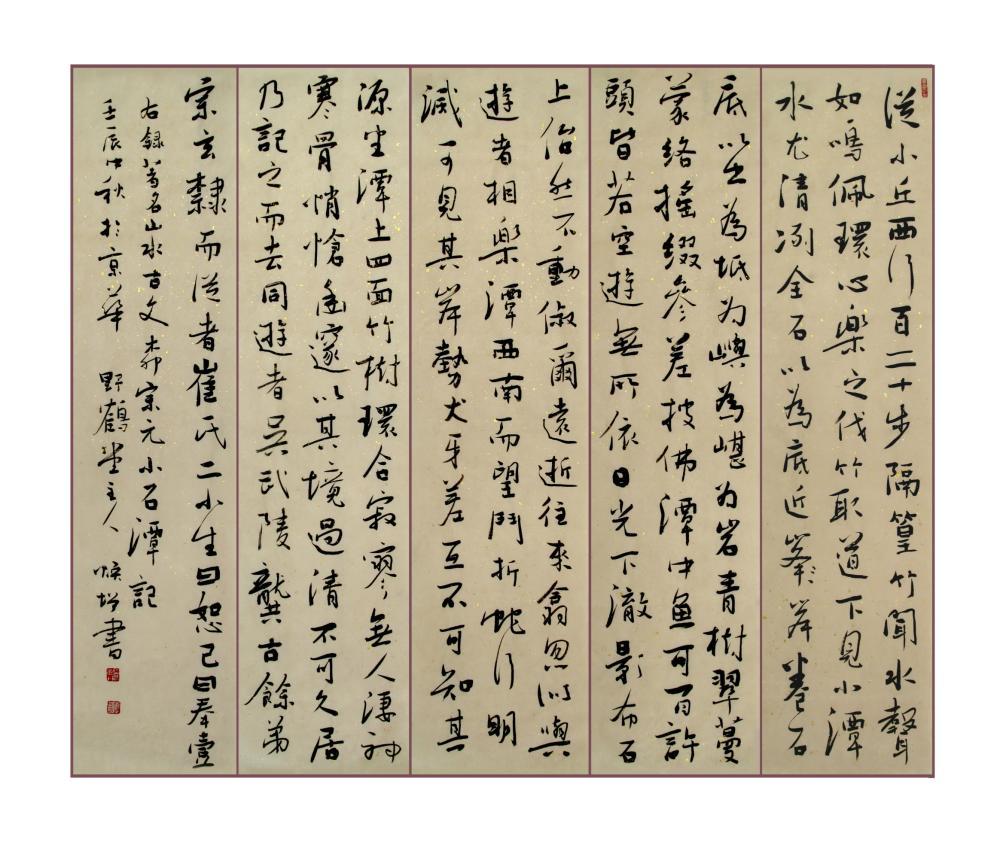 從小丘西行百二十步隔篁竹聞水聲
如鳴佩環心樂之伐竹取道下見小潭
水尤清冽全石以為底近岸卷石
底以出為坻為嶼為嵁為岩青樹翠蔓
蒙絡搖綴參差披佛潭中魚可百許
頭皆若空遊無所依日光下澈影布石
上佁然不動俶爾遠逝往來翕忽似與
遊者相樂潭西南而望鬥折蛇行明
滅可見其岸勢犬牙差互不可知其
源坐潭上四面竹樹環合寂寥無人淒神
寒骨悄愴幽邃以其境過清不可久居
乃記之而去同遊者吳武陵龔古餘弟
宗玄隸而從者崔氏二小生曰恕己曰奉壹
右録著名山水古文柳宗元小石潭記
壬辰中秋於京華 野鶴堂主人 書